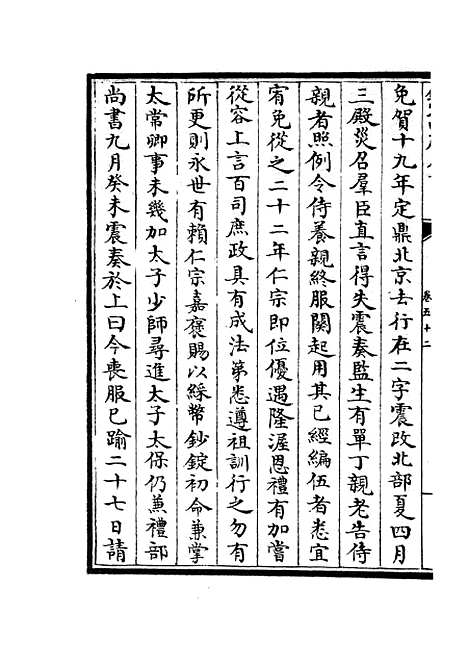 免賀十九年定鼎北京去行在二字震改北部夏四月
三殿災召羣臣直言得失震奏監生有單丁親老告侍
親者照例令侍養親終服闋起用其已經編伍者悉宜
宥免從之二十二年仁宗即位優遇隆渥恩禮有加嘗
從容上言百司庶政具有成法第悉遵祖訓行之勿有
所更則永世有賴仁宗嘉褒賜以綵幣鈔錠初命兼掌
太常卿事未幾加太子少師尋進太子太保仍兼禮部
尚書九月癸未震奏於上曰今喪服已踰二十七日請
卷五十二